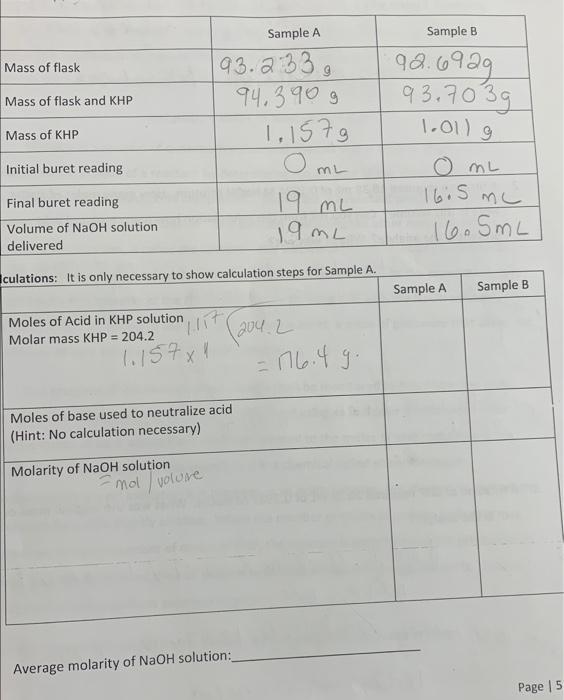 Sample A Sample B
Mass of flask 93.233 g 92.692g
Mass of flask and KHP 94.390 g 93.703g
Mass of KHP 1.157 g 1.011 g
Initial buret reading 0 mL 0 mL
Final buret reading 19 mL 16.5 mL
Volume of NaOH solution
delivered 19 mL 16.5mL
lculations: It is only necessary to show calculation steps for Sample A.
Sample A Sample B
Moles of Acid in KHP solution
Molar mass KHP = 204.2 204.2
1.157 x 1 = 176.4 g.
Moles of base used to neutralize acid
(Hint: No calculation necessary)
Molarity of NaOH solution
= mol / volume
Average molarity of NaOH solution:
Page | 5